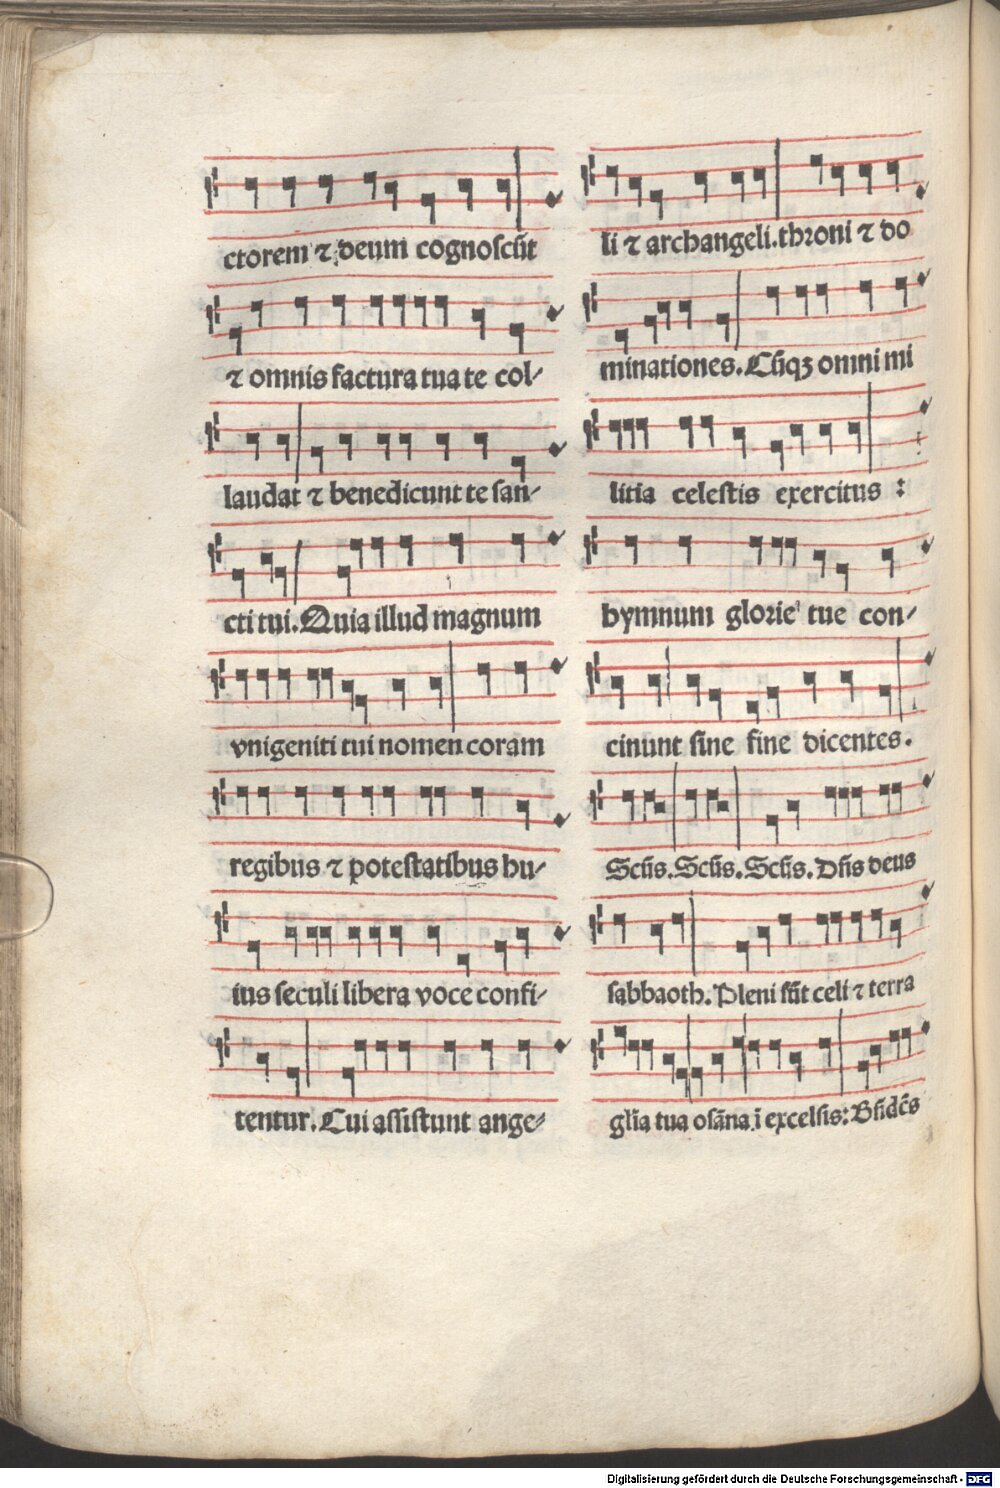 ctorem ⁊ deum cognoſcūt
⁊ omnis factura tua te col-
laudat ⁊ benedicunt te ſan-
cti tui. Quia illud magnum
vnigeniti tui nomen coram
regibus ⁊ poteſtatibus hu-
ius ſeculi libera voce confi-
tentur. Cui aſſiſtunt ange-
li ⁊ archangeli. throni ⁊ do
minationes. Cūqꝫ omni mi
litia celeſtis exercitus :
hymnum glorie tue con-
cinunt ſine fine dicentes.
Sctūs. Sctūs. Sctūs. Dn̄s deus
ſabbaoth. Pleni ſūt celi ⁊ terra
gl̄ia tua oſāna ī excelſis: Bn̄dc̄s
Digitalisierung gefördert durch die Deutsche Forschungsgemeinschaft - DFG